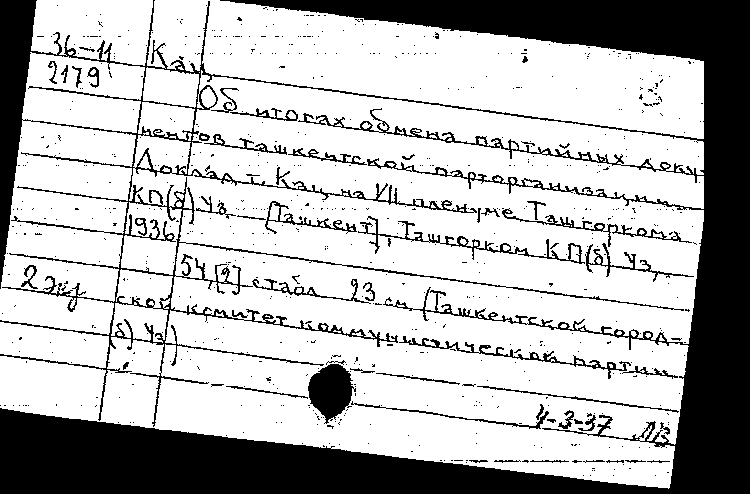 36-11 Кац
2179
Об итогах обмена партийных доку-
ментов ташкентской парторганизации.
Доклад т. Кац на VII пленуме Ташгоркома
КП(б) Уз. [Ташкент], Ташгорком КП(б) Уз,
1936.
54, [2] с табл 23 см (Ташкентской город=
2 экз ской комитет коммунистической партии
(б) Уз)
4-3-37 ЛВ